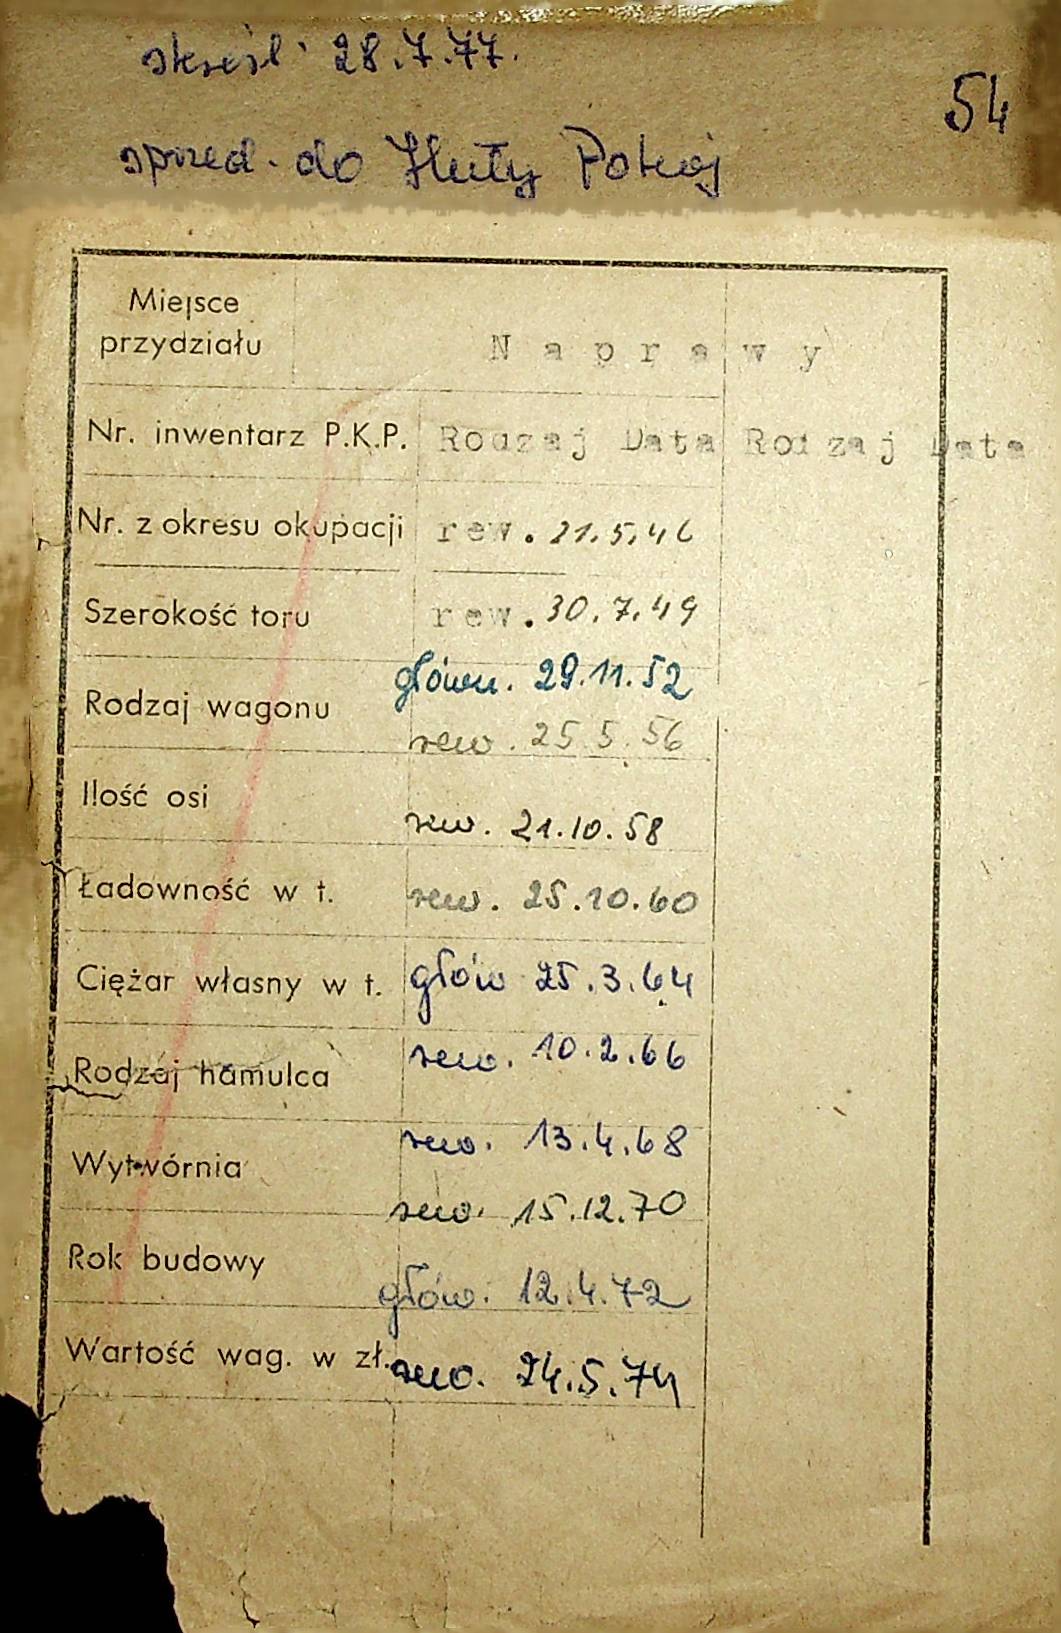 skreśl. 28.7.77.
54
sprzed. do Huty Pokój
Miejsce
przydziału
Naprawy
Nr. inwentarz P.K.P. Rodzaj Data Rodzaj Data
Nr. z okresu okupacji rew. 21.5.46
Szerokość toru rew. 30.7.49
główn. 29.11.52
Rodzaj wagonu
rew. 25.5.56
Ilość osi
rew. 21.10.58
Ładowność w t. rew. 25.10.60
Ciężar własny w t. głów 25.3.64
rew. 10.2.66
Rodzaj hamulca
rew. 13.4.68
Wytwórnia
rew. 15.12.70
Rok budowy
głów. 12.4.72
Wartość wag. w zł. rew. 24.5.74